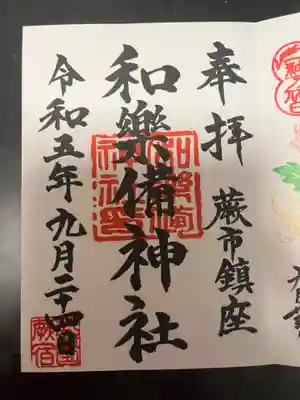 奉拝
蕨市鎮座
和樂備神社
令和五年九月二十四日
蕨宿